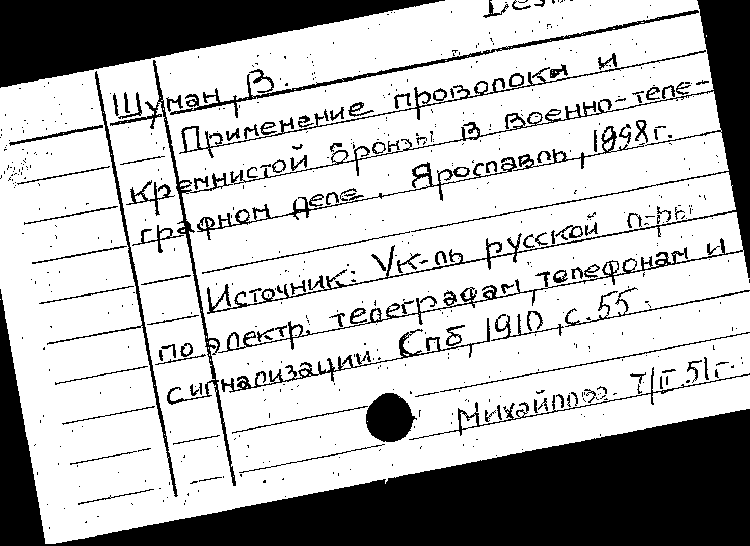 Шуман, В.
Применение проволоки и
кремнистой бронзы в военно-теле-
графном деле. Ярославль, 1898г.
Источник: Ук-ль русской л-ры
по электр. телеграфам, телефонам и
сигнализации. Спб, 1910, с. 55.
Михайлова. 7/II.51г.